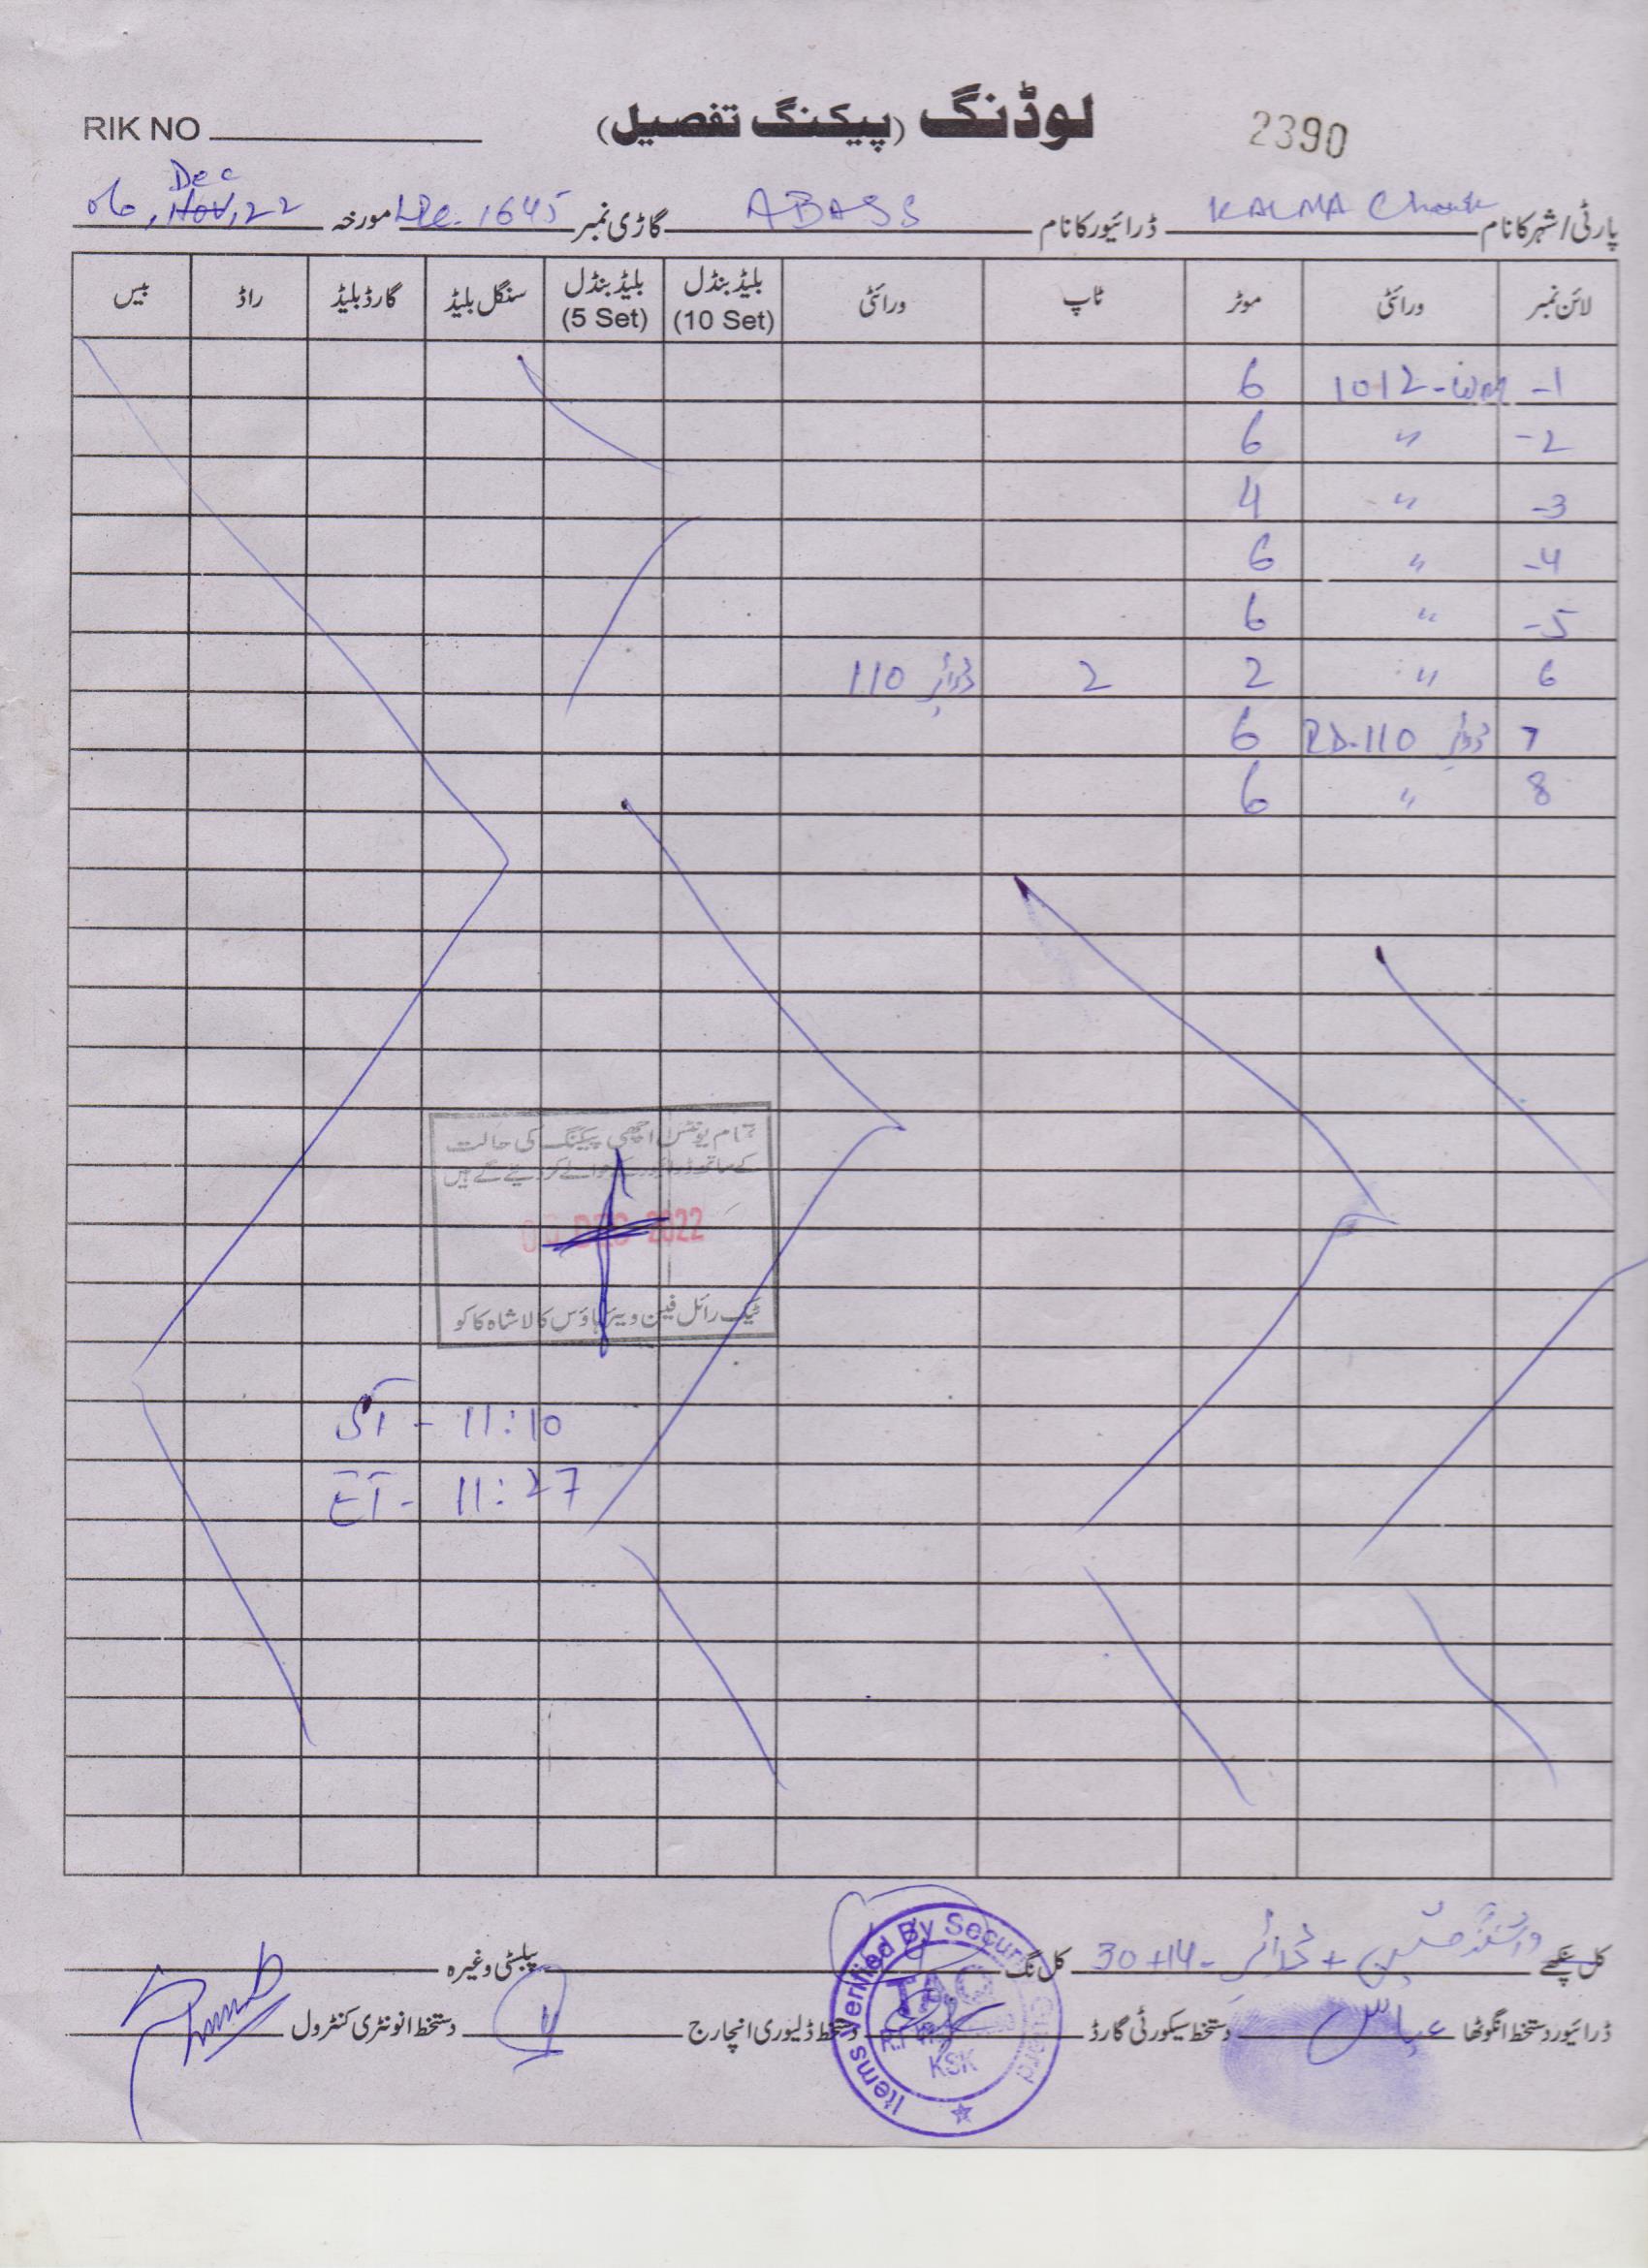 RIK NO
لوڈنگ (پیکنگ تفصیل)
2390
پارٹی/شہر کا نام KALMA Chowk ڈرائیور کا نام ABASS گاڑی نمبر 1645 مورخہ 06, Dec Nov, 22
لائن نمبر ورائٹی موٹر ٹاپ ورائٹی بلیڈ بنڈل (10 Set) بلیڈ بنڈل (5 Set) سنگل بلیڈ گارڈ بلیڈ راڈ بیس
-1 1012- 6
-2 " 6
-3 " 4
-4 " 6
-5 " 6
6 " 2 2 ڈرائیر 110
7 ڈرائیر RD-110 6
8 " 6
تمام یونٹس اچھی پیکنگ کی حالت
کے ساتھ ڈرائیور کے حوالے کر دیئے گئے ہیں
DEC 2022
ٹیک رائل فین ویئر ہاؤس کالا شاہ کاکو
ST - 11:10
ET - 11:27
کل پنکھے واشنگ مشین + ڈرائیر - 30+14 کل نگ پبلسٹی وغیرہ
ڈرائیور دستخط انگوٹھا عباس دستخط سیکورٹی گارڈ دستخط ڈلیوری انچارج دستخط انونٹری کنٹرول
Items Verified By Security Guard
KSK